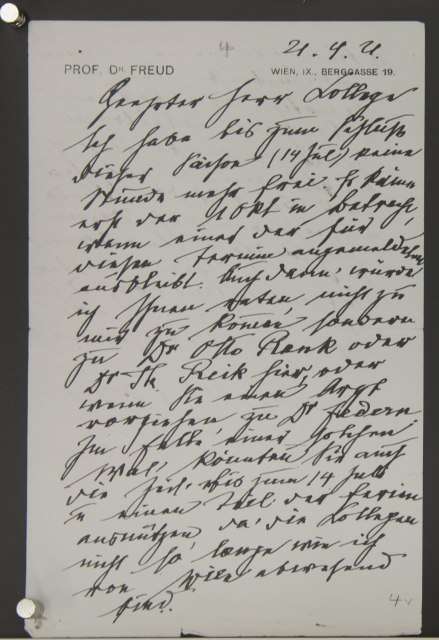 4
21. 4. 21.
PROF. DR. FREUD
WIEN, IX., BERGGASSE 19.
Geehrter Herr College
Ich habe bis zum Schluß
dieser Saison (14 Juli) keine
Stunde mehr frei. Es käme
erst der 1 Okt in Betracht,
wenn einer der für
diesen Termin angemeldeten
ausbleibt. Auch dann würde
ich Ihnen raten, nicht zu
mir zu kommen, sondern
zu Dr Otto Rank oder
Dr Th Reik hier, oder
wenn Sie einen Arzt
vorziehen zu Dr Federn
Im Falle einer solchen
Wal, könnten Sie auch
die Zeit bis zum 14 Juli
u einen Teil der Ferien
ausnützen, da die Collegen
nicht so lange wie ich
von Wien abwesend
sind.
4v